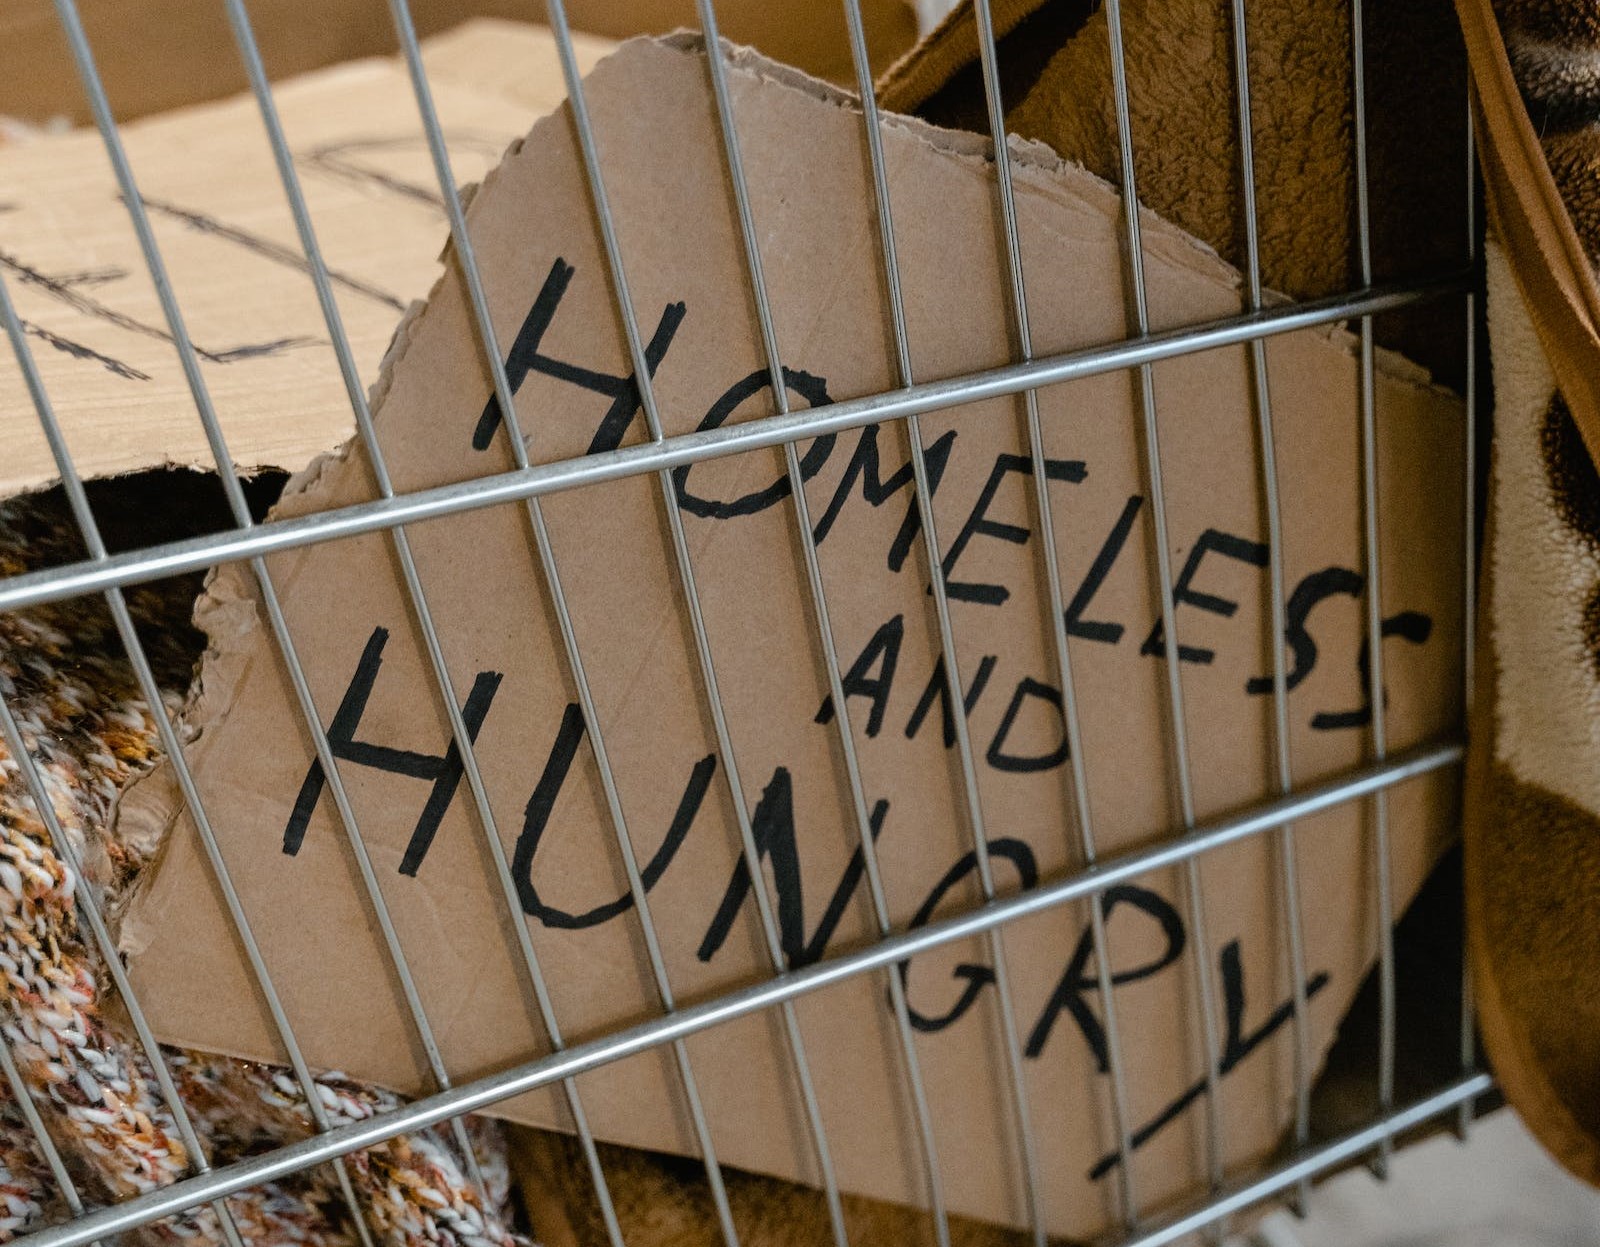 HOMELESS
AND
HUNGRY